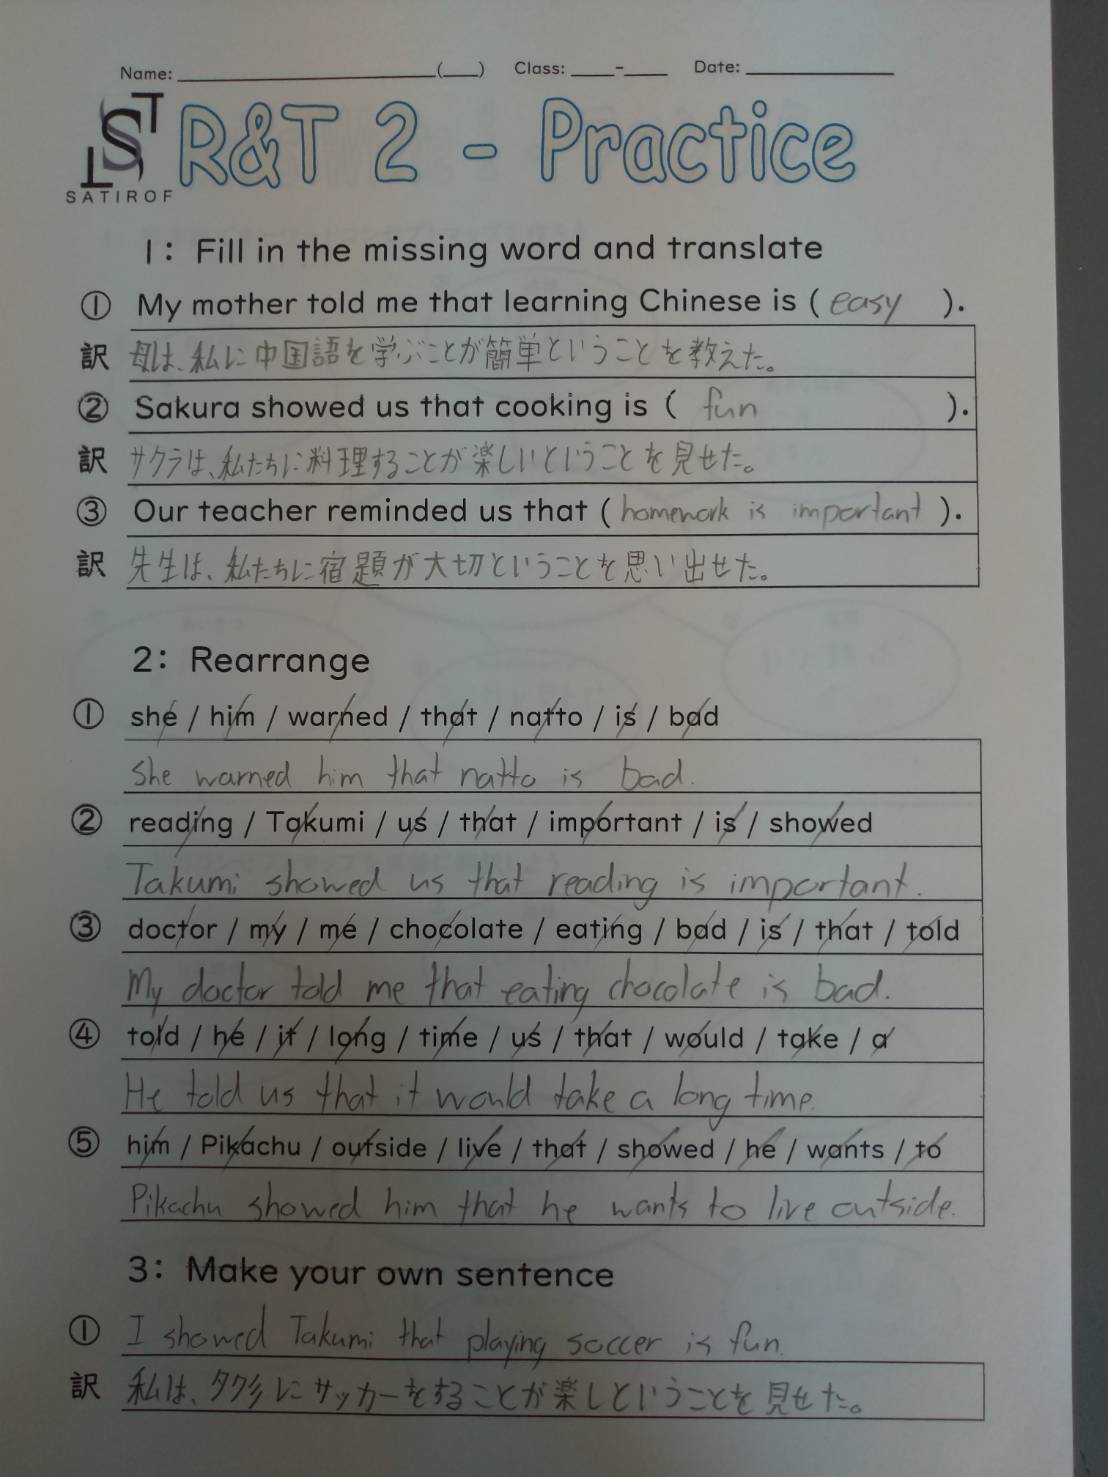 Name: ____ (__) Class: __-__ Date: ____
SATIROF
R&T 2 - Practice
1: Fill in the missing word and translate
① My mother told me that learning Chinese is ( easy ).
訳 母は、私に中国語を学ぶことが簡単ということを教えた。
② Sakura showed us that cooking is ( fun ).
訳 サクラは、私たちに料理することが楽しいということを見せた。
③ Our teacher reminded us that ( homework is important ).
訳 先生は、私たちに宿題が大切ということを思い出せた。
2: Rearrange
① she / him / warned / that / natto / is / bad
She warned him that natto is bad.
② reading / Takumi / us / that / important / is / showed
Takumi showed us that reading is important.
③ doctor / my / me / chocolate / eating / bad / is / that / told
My doctor told me that eating chocolate is bad.
④ told / he / it / long / time / us / that / would / take / a
He told us that it would take a long time.
⑤ him / Pikachu / outside / live / that / showed / he / wants / to
Pikachu showed him that he wants to live outside.
3: Make your own sentence
① I showed Takumi that playing soccer is fun.
訳 私は、タクミにサッカーをすることが楽しということを見せた。